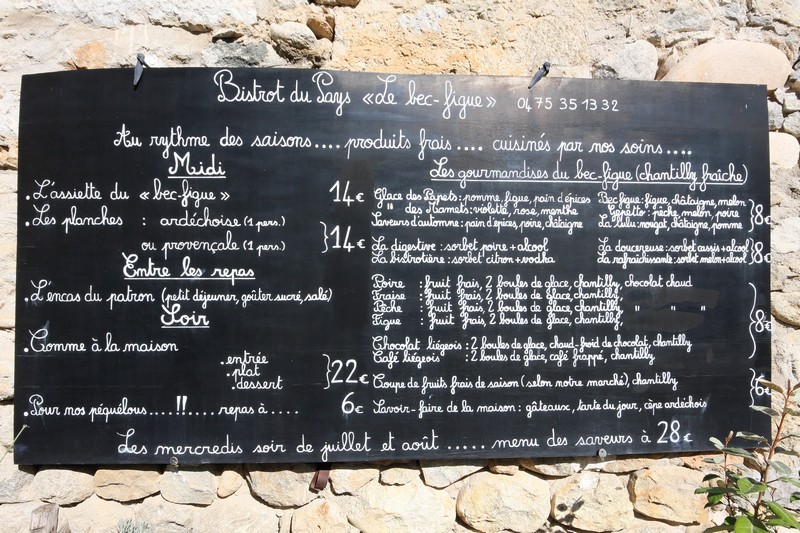 Bistrot du Pays «Le bec-figue» 04 75 35 13 32
Au rythme des saisons.... produits frais.... cuisinés par nos soins....
Midi
.L'assiette du «bec-figue» 14€
.Les planches : ardéchoise (1 pers.)
ou provençale (1 pers.) } 14€
Entre les repas
.L'encas du patron (petit déjeuner, goûter sucré, salé)
Soir
.Comme à la maison
.entrée
.plat
.dessert } 22€
.Pour nos péquélous....!!..... repas à..... 6€
Les gourmandises du bec-figue (chantilly fraîche)
Glace des Papets : pomme, figue, pain d'épices Bec figue : figue, châtaigne, melon
" des Mamets : violette, rose, menthe Gepetto : pêche, melon, poire
Saveurs d'automne : pain d'épices, poire, châtaigne La Lulu : nougat, châtaigne, pomme } 8€
La digestive : sorbet poire + alcool La doucereuse : sorbet cassis + alcool
La bistrotière : sorbet citron + vodka La rafraichissante : sorbet melon + alcool } 8€
Poire : fruit frais, 2 boules de glace, chantilly, chocolat chaud
Fraise : fruit frais, 2 boules de glace, chantilly,
Pêche : fruit frais, 2 boules de glace, chantilly, " " "
Figue : fruit frais, 2 boules de glace, chantilly,
Chocolat liégeois : 2 boules de glace, chaud-froid de chocolat, chantilly
Café liégeois : 2 boules de glace, café frappé, chantilly. } 8€
Coupe de fruits frais de saison (selon notre marché), chantilly
Savoir-faire de la maison : gâteaux, tarte du jour, cèpe ardéchois } 6€
Les mercredis soir de juillet et août ..... menu des saveurs à 28€